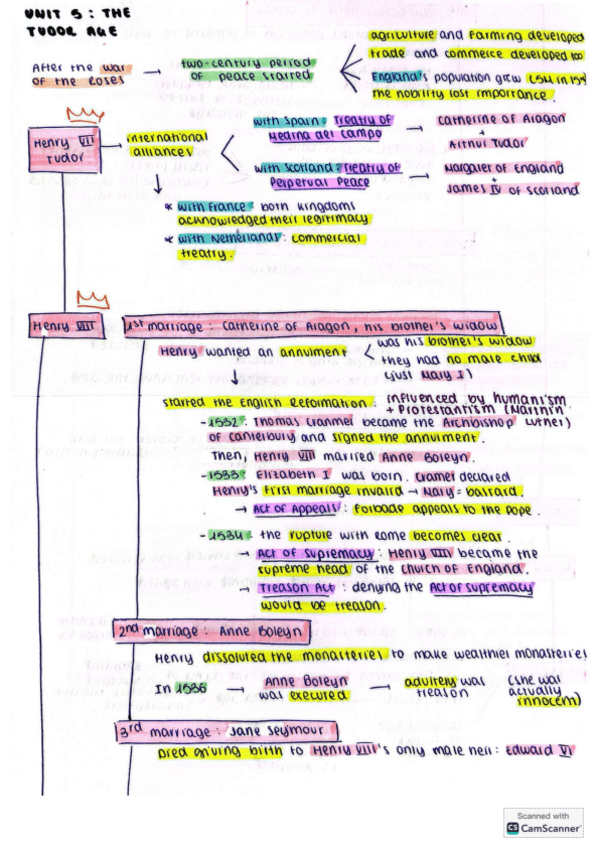 UNIT 5: THE
TUDOR AGE
After the war of the Roses → two-century period of peace started
agriculture and farming developed
trade and commerce developed too
England's population grew
the nobility lost importance.
Henry VII Tudor → international alliances
with Spain: Treaty of Medina del Campo → Catherine of Aragon + Arthur Tudor
with Scotland: Treaty of Perpetual Peace → Margaret of England + James IV of Scotland
* with France: both kingdoms
acknowledged their legitimacy
* with Netherlands: commercial
treatry.
Henry VIII
1st marriage: Catherine of Aragon, his brother's widow
Henry wanted an annulment
was his brother's widow
they had no male child
(just Mary I)
started the English Reformation: influenced by humanism
+ Protestantism (Marthin Luther)
- 1532: Thomas Cranmer became the Archbishop
of Canterbury and signed the annulment.
Then, Henry VIII married Anne Boleyn.
- 1533: Elizabeth I was born. Cramer declared
Henry's first marriage invalid → Mary = bastard.
→ Act of Appeals: forbade appeals to the pope.
- 1534: the rupture with Rome becomes clear.
→ Act of Supremacy: Henry VIII became the
supreme head of the church of England.
→ Treason Act: denying the Act of Supremacy
would be treason.
2nd marriage: Anne Boleyn
Henry dissolved the monasteries to make wealthier monasteries
In 1536 → Anne Boleyn was executed → adultery was treason (she was actually innocent)
3rd marriage: Jane Seymour
Died giving birth to Henry VIII's only male heir: Edward VI
Scanned with
CS CamScanner